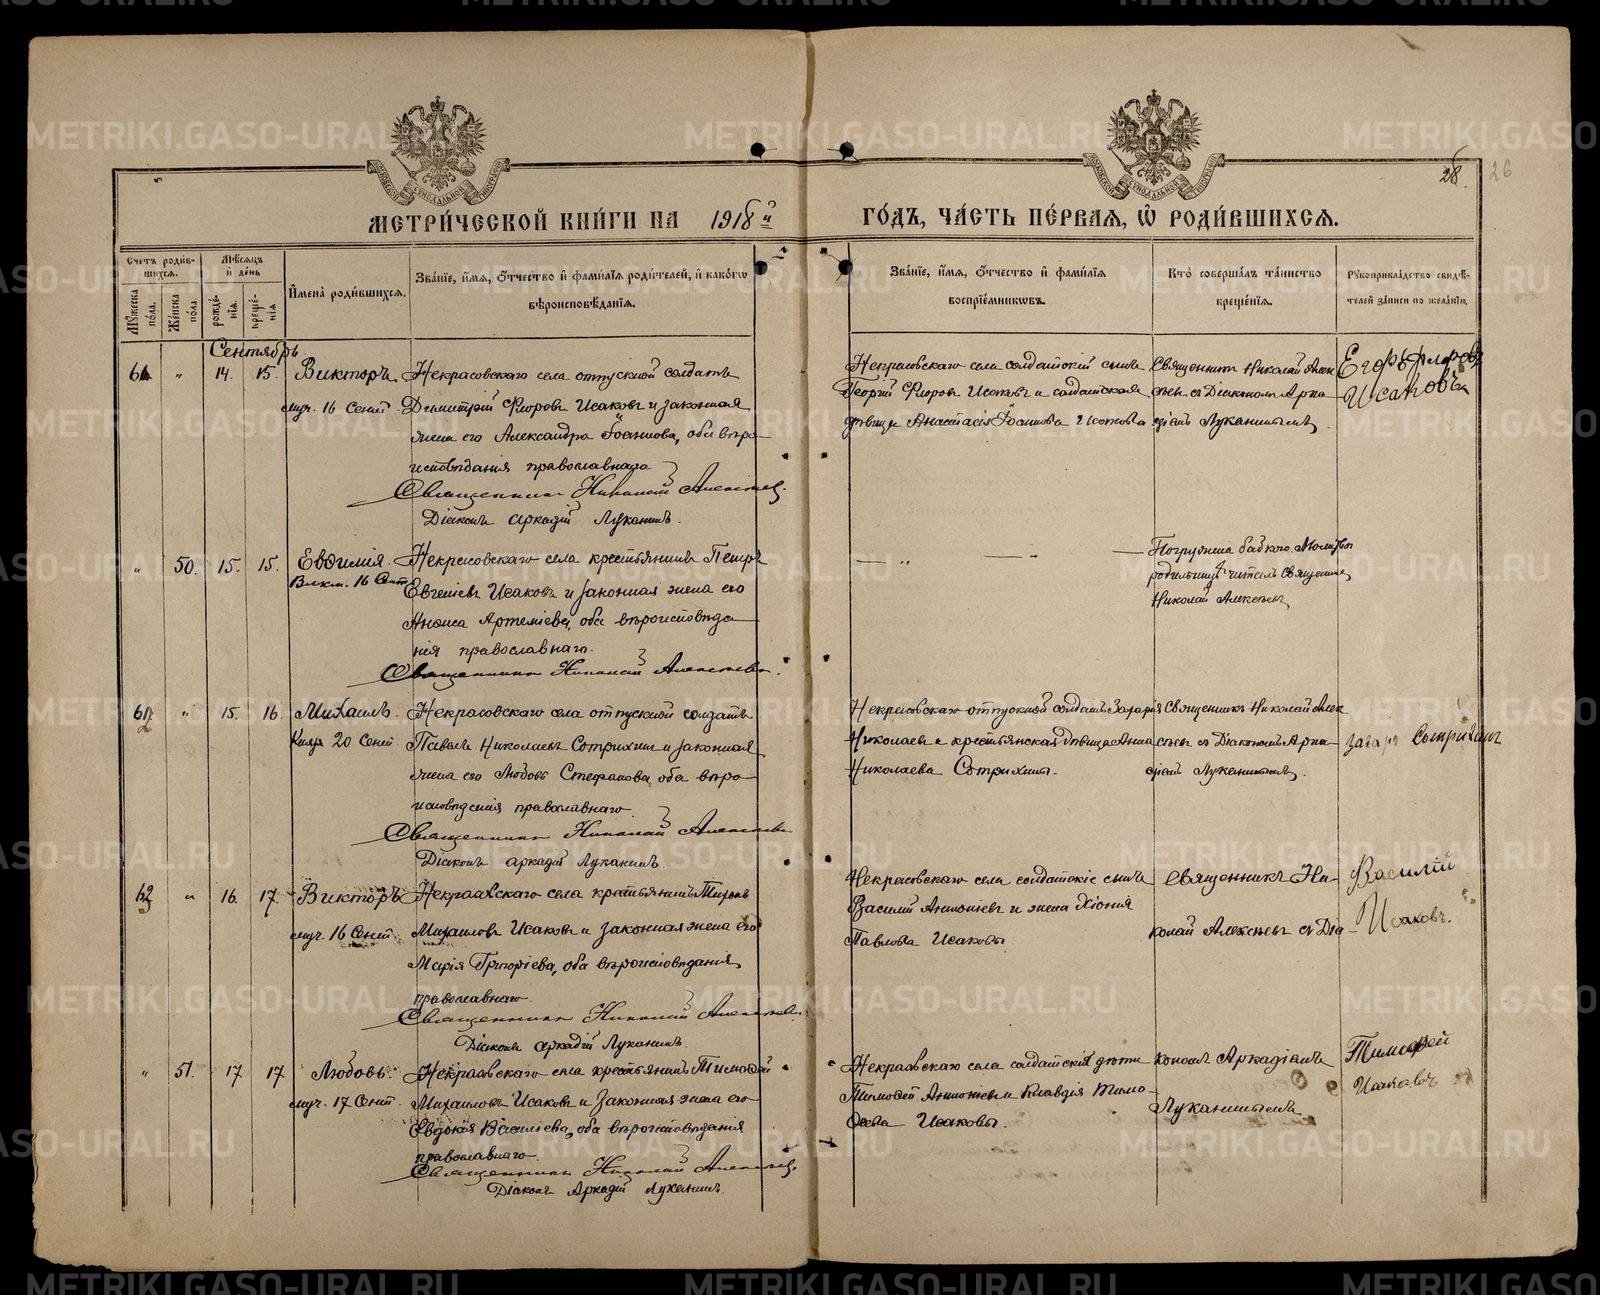 METRIKI.GASO-URAL.RU
МЕТРИ́ЧЕСКОЙ КНИ́ГИ НА 1918й ГО́ДЪ, ЧА́СТЬ ПЕ́РВАЯ, Ѡ҆ РОДИ́ВШИХСЯ.
26
Счетъ роди́вшихся.
Мѣ́сяцъ и҆ де́нь
Мꙋ́жеска по́ла.
Же́нска по́ла
рожде́нїѧ.
креще́нїѧ
И҆мена̀ роди́вшихсѧ.
Зва́нїе, и҆́мѧ, ѻ҆́тчество и҆ фами́лїѧ роди́телей, и҆ како́гѡ вѣ́роисповѣ́данїѧ.
Зва́нїе, и҆́мѧ, ѻ҆́тчество и҆ фами́лїѧ воспрїе́мникѡвъ.
Кто̀ соверша́лъ та́инство креще́нїѧ.
Рꙋкоприкла́дство свидѣ́телей за́писи по жела́нїю.
Сентябрь
14. 15. Викторъ
муч. 16 Сент.
Некрасовскаго села отпускной солдатъ
Димитрій Флоровъ Исаковъ и законная
жена его Александра Іоаннова, оба вѣро-
исповѣданія православнаго
Священникъ Николай Алексѣевъ
Діаконъ Аркадій Луканинъ.
Некрасовскаго села солдатскій сынъ
Георгій Флоровъ Исаковъ и солдатская
дѣвица Анастасія Іоаннова Исакова
Священникъ Николай Алек
сѣевъ съ Діакономъ Арка-
діемъ Луканинымъ
Егоръ Флоровъ
Исаковъ
" 50. 15. 15. Евѳимія.
Влкм. 16 Сент.
Некрасовскаго села крестьянинъ Петръ
Евгеніевъ Исаковъ и законная жена его
Анѳиса Артеміева, оба вѣроисповѣда
нія православнаго.
Священникъ Николай Алексѣевъ.
Погружена бабкою Молитвы
родильницѣ читалъ Священникъ
Николай Алексѣевъ
" 15. 16. Михаилъ.
Князя 20 Сент.
Некрасовскаго села отпускной солдатъ
Павелъ Николаевъ Сотрихинъ и законная
жена его Любовь Стефанова, оба вѣро-
исповѣданія православнаго.
Священникъ Николай Алексѣевъ
Діаконъ Аркадій Луканинъ.
Некрасовскаго отпускной солдатъ Захарія
Николаевъ и крестьянская дѣвица Анна
Николаева Сотрихины.
Священникъ Николай Алек
сѣевъ съ Діакономъ Арка-
діемъ Луканинымъ.
Захаръ Сотрихинъ
" 16. 17. Викторъ
муч. 16 Сент.
Некрасовскаго села крестьянинъ Тихонъ
Михаиловъ Исаковъ и законная жена его
Марія Григоріева, оба вѣроисповѣданія
православнаго.
Священникъ Николай Алексѣевъ.
Діаконъ Аркадій Луканинъ.
Некрасовскаго села солдатскіе сынъ
Василій Антоніевъ и жена Хіонія
Павлова Исаковы.
Священникъ Ни-
колай Алексѣевъ съ Діа-
Василій
Исаковъ.
" 51. 17 17 Любовь.
муч. 17 Сент.
Некрасовскаго села крестьянинъ Тимоѳей
Михаиловъ Исаковъ и законная жена его
Евдокія Василіева, оба вѣроисповѣданія
православнаго.
Священникъ Николай Алексѣевъ.
Діаконъ Аркадій Луканинъ.
Некрасовскаго села солдатскія дѣти
Тимоѳей Антоніевъ и Клавдія Тимо-
ѳеева Исаковы.
кономъ Аркадіемъ
Луканинымъ.
Тимофей
Исаковъ